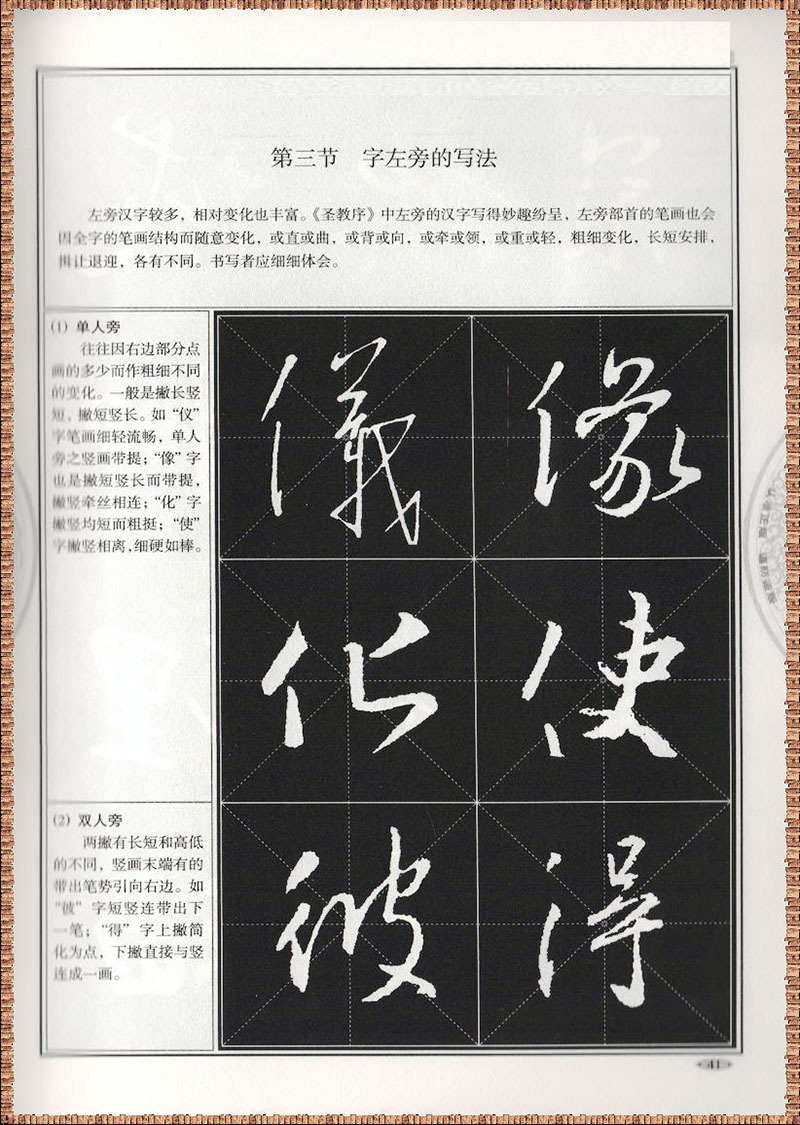 第三节 字左旁的写法
左旁汉字较多，相对变化也丰富。《圣教序》中左旁的汉字写得妙趣纷呈，左旁部首的笔画也会
因全字的笔画结构而随意变化，或直或曲，或背或向，或牵或领，或重或轻，粗细变化，长短安排，
揖让退迎，各有不同。书写者应细细体会。
(1) 单人旁
往往因右边部分点
画的多少而作粗细不同
的变化。一般是撇长竖
短，撇短竖长。如“仪”
字笔画细轻流畅，单人
旁之竖画带提；“像”字
也是撇短竖长而带提，
撇竖牵丝相连；“化”字
撇竖均短而粗挺；“使”
字撇竖相离，细硬如棒。
儀 像
化 使
(2) 双人旁
两撇有长短和高低
的不同，竖画末端有的
带出笔势引向右边。如
“彼”字短竖连带出下
一笔；“得”字上撇简
化为点，下撇直接与竖
连成一画。
彼 得
41